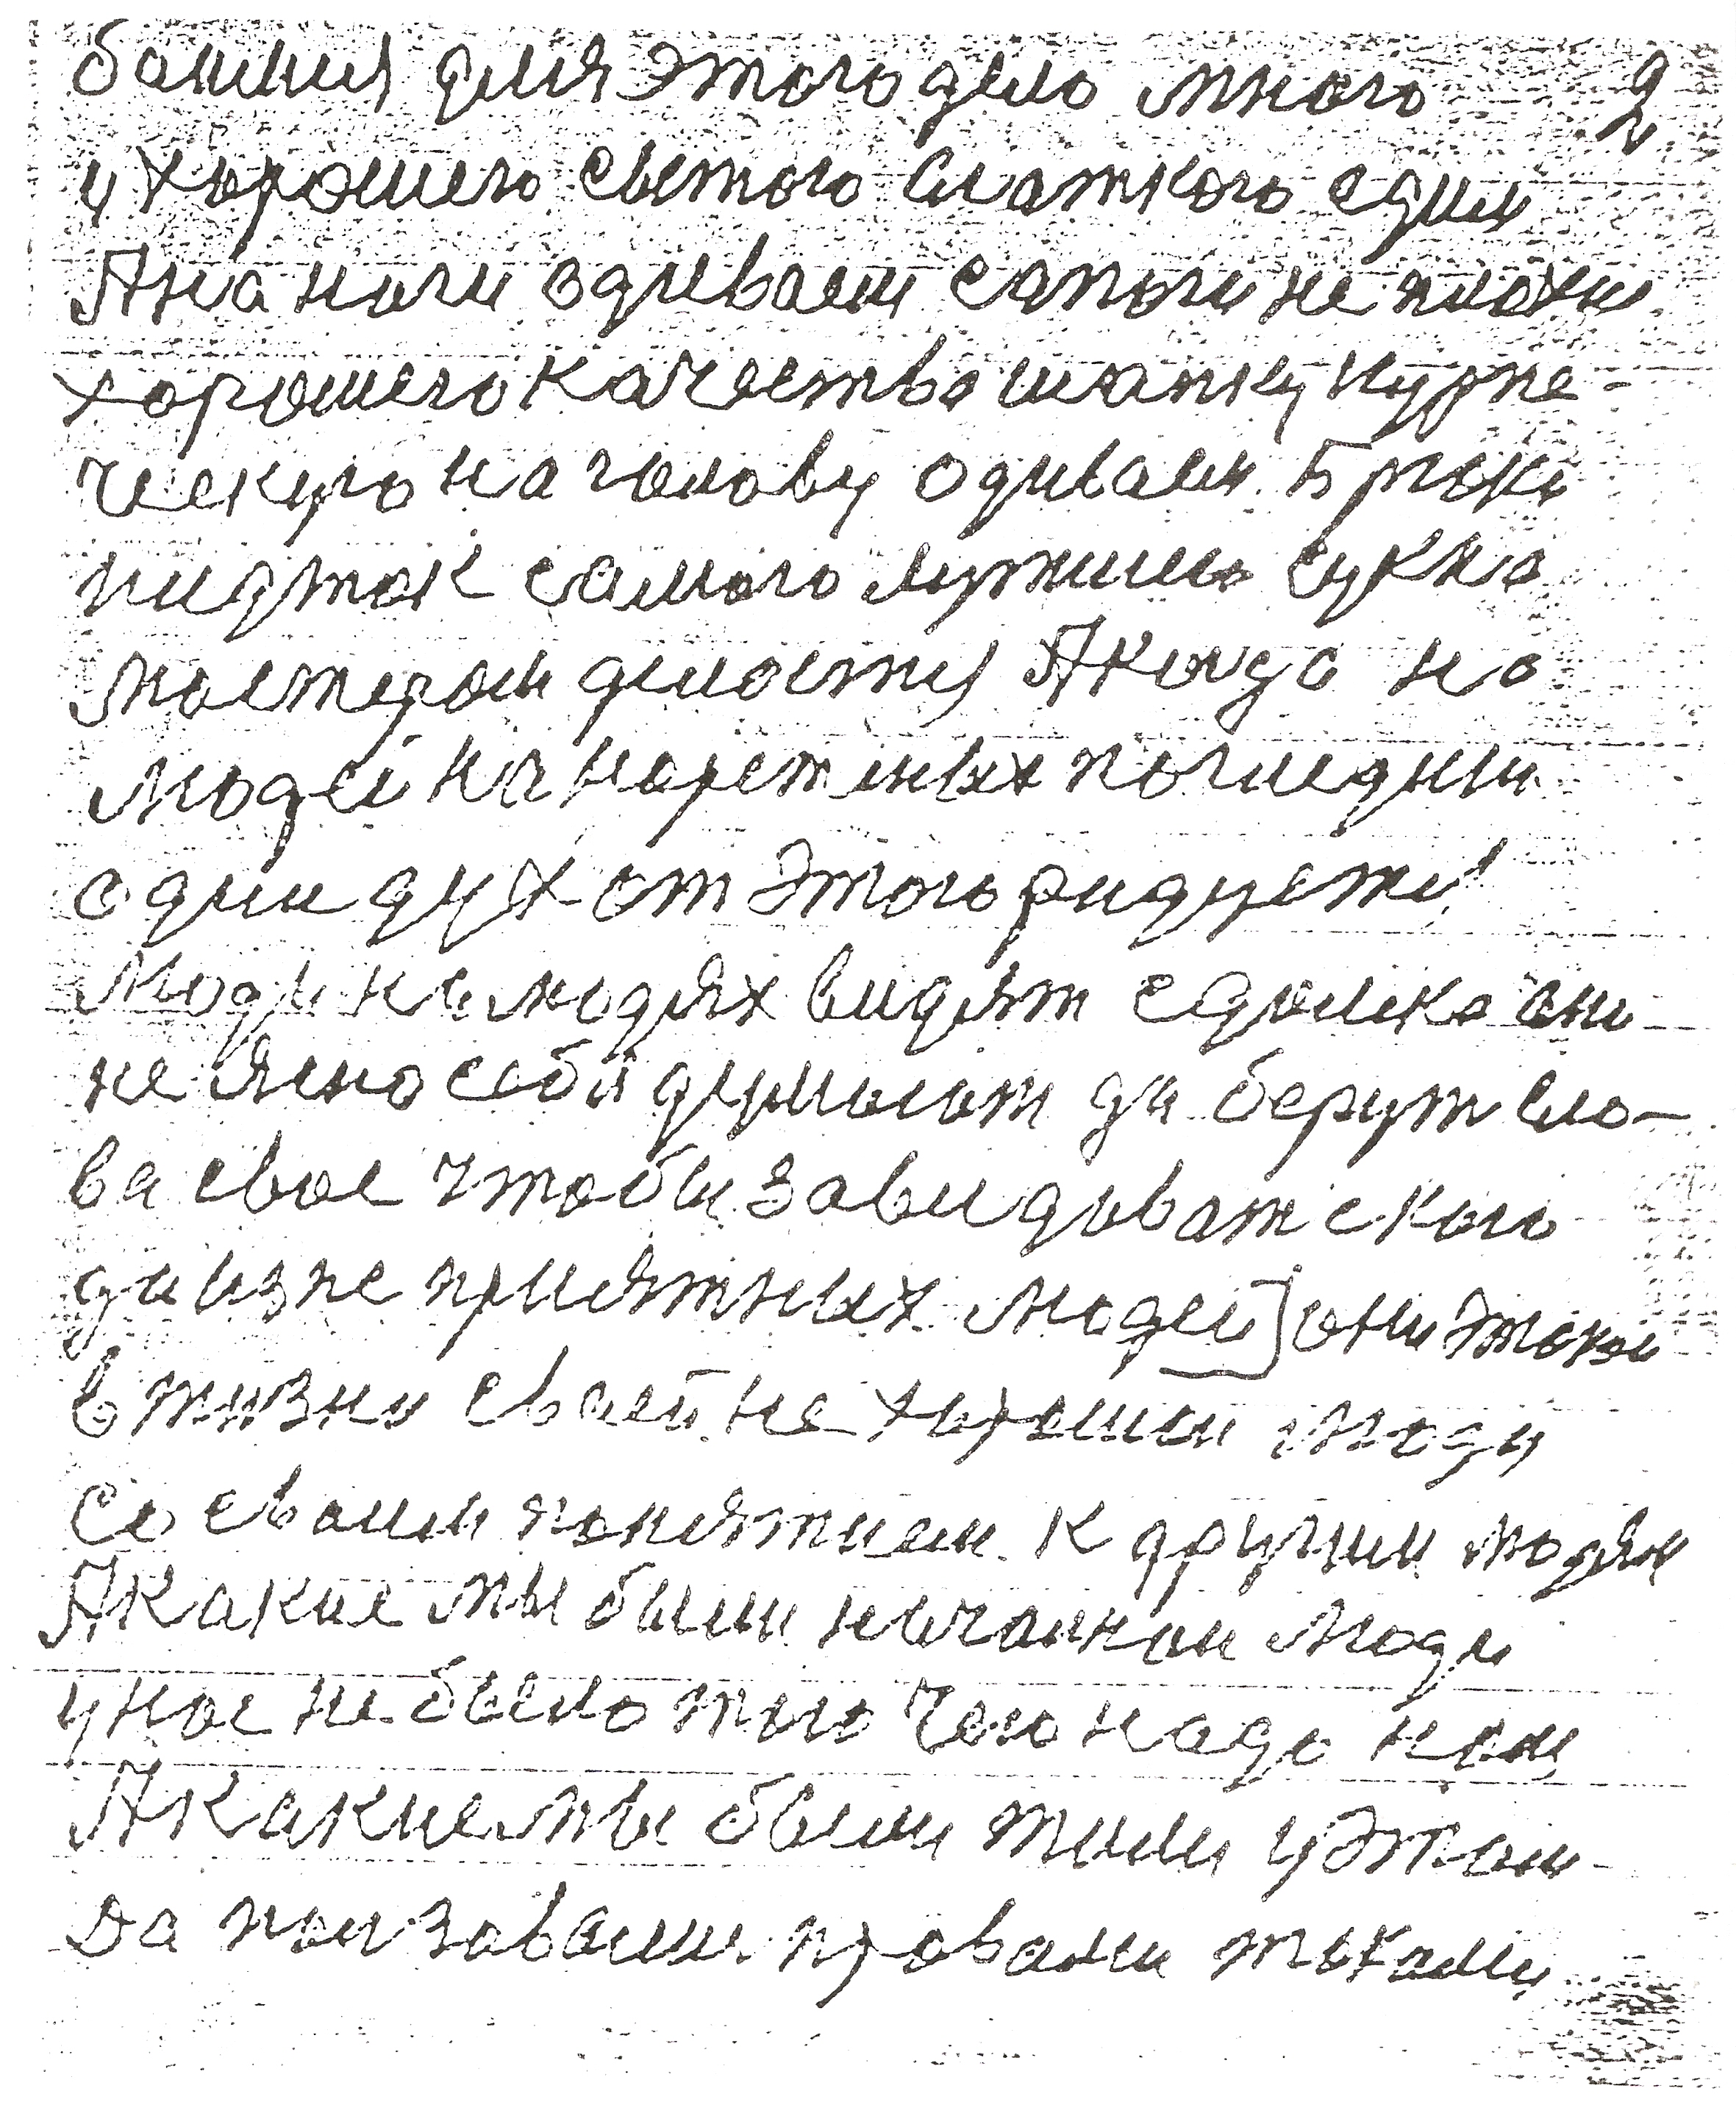 бании для этого дело много 2
и хорошего сытого слаткого едим
А на ноги одиваем сапоги не плохи
хорошего качества шапку курпе-
ческую на голову одиваем Брюки
пиджак самого лутшего сукна
мастером делается А когда на
людей на нарежених поглядим
один дух от этого радуется
Люди на людях видят едолика они
не ясно себи думают да берут сло-
ва свое чтобы завидоват с кого
да из не приятных людей] они такои
в жизни своей не хорошии люди
Со своим понятием к другим людям
А какие мы были нечаинои люди
у нас не было того чего надо нам
А какие мы были тими у этом
да ползовалис провами такими